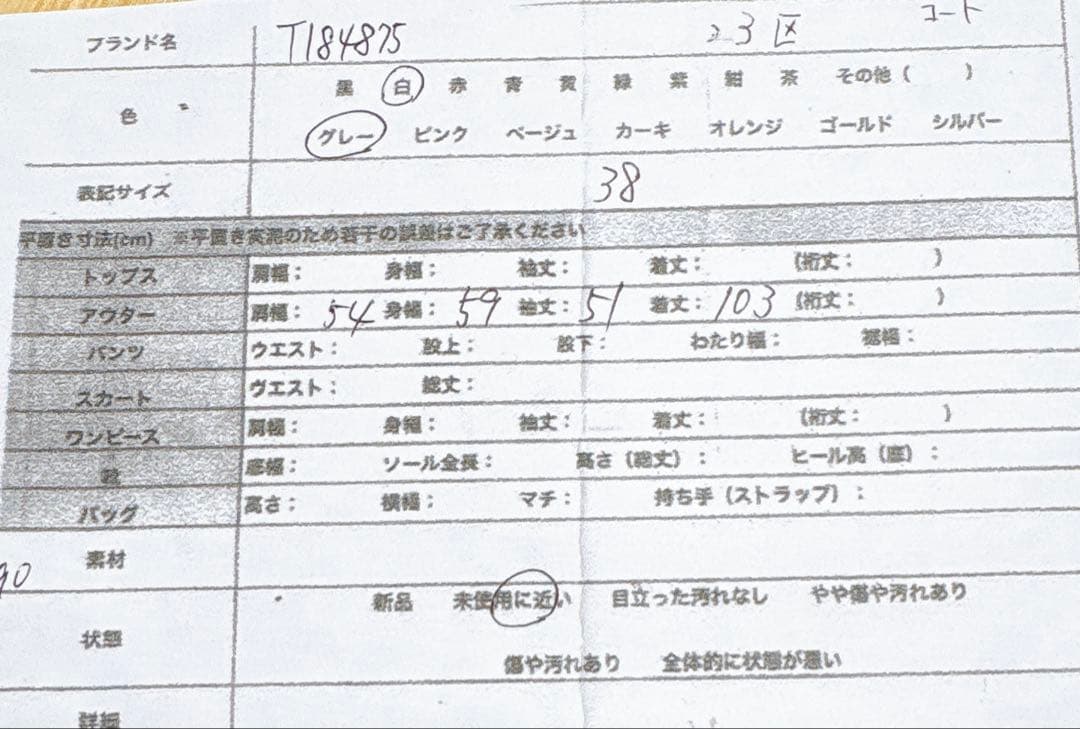 ブランド名 T184875 23区 コート
色 黒 白 赤 青 黄 緑 紫 紺 茶 その他( )
グレー ピンク ベージュ カーキ オレンジ ゴールド シルバー
表記サイズ 38
平置き寸法(cm) ※平置き実測のため若干の誤差はご了承ください
トップス 肩幅: 身幅: 袖丈: 着丈: (裄丈: )
アウター 肩幅: 54 身幅: 59 袖丈: 51 着丈: 103 (裄丈: )
パンツ ウエスト: 股上: 股下: わたり幅: 裾幅:
スカート ウエスト: 総丈:
ワンピース 肩幅: 身幅: 袖丈: 着丈: (裄丈: )
靴 底幅: ソール全長: 高さ(総丈): ヒール高(底):
バッグ 高さ: 横幅: マチ: 持ち手(ストラップ):
素材
90
状態 新品 未使用に近い 目立った汚れなし やや傷や汚れあり
傷や汚れあり 全体的に状態が悪い
詳細